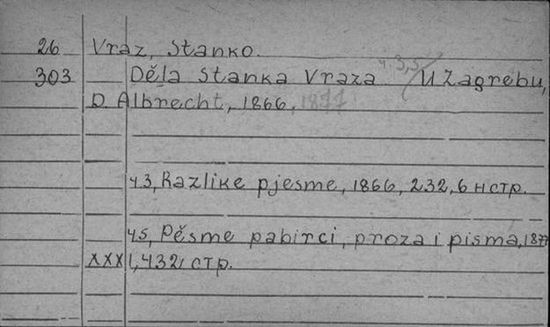 26 Vraz, Stanko.
303 Děla Stanka Vraza ч.3,5 U Zagrebu,
D. Albrecht, 1866, 1877
ч.3, Razlike pjesme, 1866, 232, 6 н стр.
ч5, Pěsme pabirci, proza i pisma, 1877
XXXI, 432, стр.